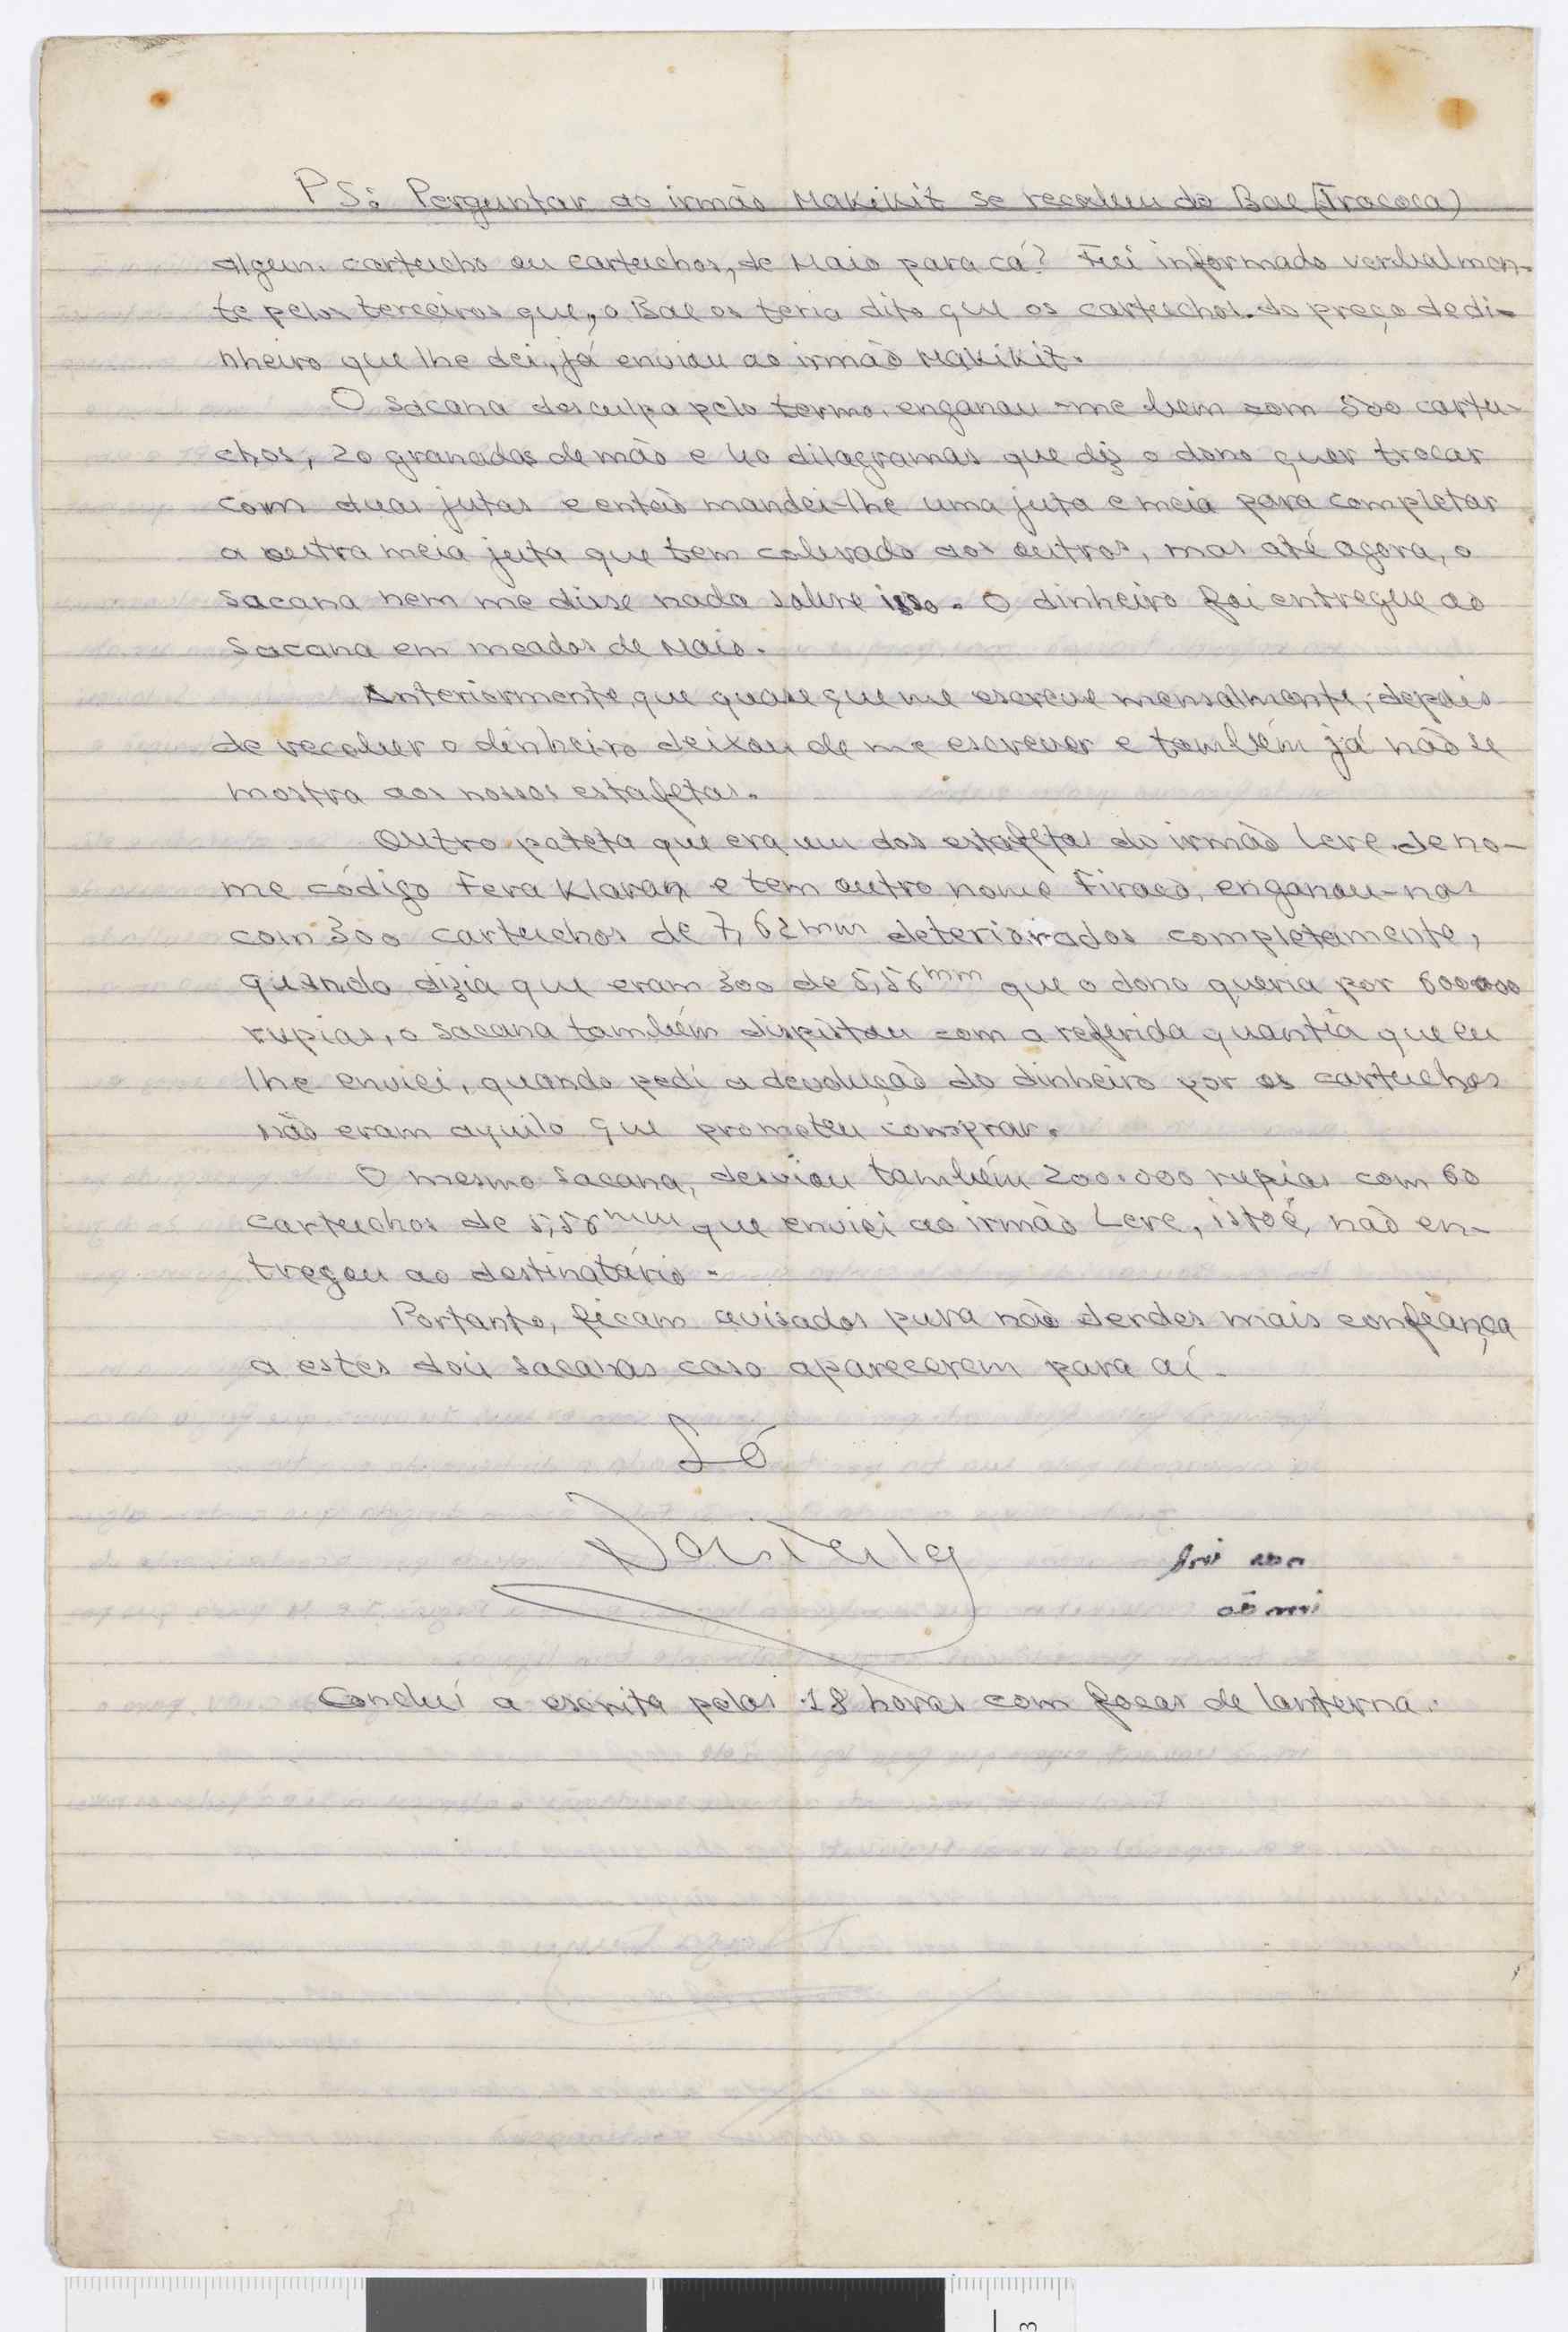 PS: Perguntar ao irmão Makikit se recebeu do Bae (Tracoca)
algum cartucho ou cartuchos, de Maio para cá? Fui informado verbalmen-
te pelos terceiros que, o Bae os teria dito que os cartuchos do preço de di-
nheiro que lhe dei, já enviou ao irmão Makikit.
O sacana desculpa pelo termo, enganou-me bem com 500 cartu-
chos, 20 granadas de mão e 40 dilagramas que diz o dono quer trocar
com duas jutas e então mandei-lhe uma juta e meia para completar
a outra meia juta que tem cobrado aos outros, mas até agora, o
sacana nem me disse nada sobre isso. O dinheiro foi entregue ao
sacana em meados de Maio.
Anteriormente, que quase que me escreve mensalmente, depois
de receber o dinheiro deixou de me escrever e também já não se
mostra aos nossos estafetas.
Outro pateta que era um dos estafetas do irmão Lere, de no-
me código Fera Klaran e tem outro nome Firaco, enganou-nos
com 300 cartuchos de 7,62mm deteriorados completamente,
quando dizia que eram 300 de 5,56mm que o dono queria por 600000
rupias, o sacana também dispistou com a referida quantia que eu
lhe enviei, quando pedi a devolução do dinheiro por os cartuchos
não eram aquilo que prometeu comprar.
O mesmo sacana, desviou também 200.000 rupias com 60
cartuchos de 5,56mm que enviei ao irmão Lere, isto é, não en-
tregou ao destinatário.
Portanto, ficam avisados para não derdes mais confiança
a estes dois sacanas caso aparecerem para aí.
Só
Concluí a escrita pelas 18 horas com focas de lanterna.